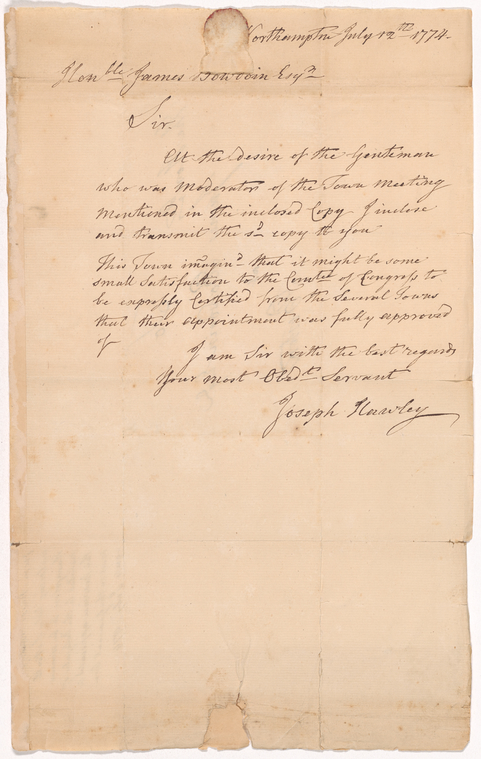 Northampton July 12th 1774.
Honble James Bowdoin Esqr
Sir.
At the desire of the Gentleman
who was Moderator of the Town Meeting
Mentioned in the inclosed Copy I inclose
and transmit the sd copy to you
This Town imagind that it might be some
small Satisfaction to the Comtee of Congress to
be expressly Certified from the Several Towns
that their appointment was fully approved
of
I am Sir with the best regards
Your most Obedt Servant
Joseph Hawley